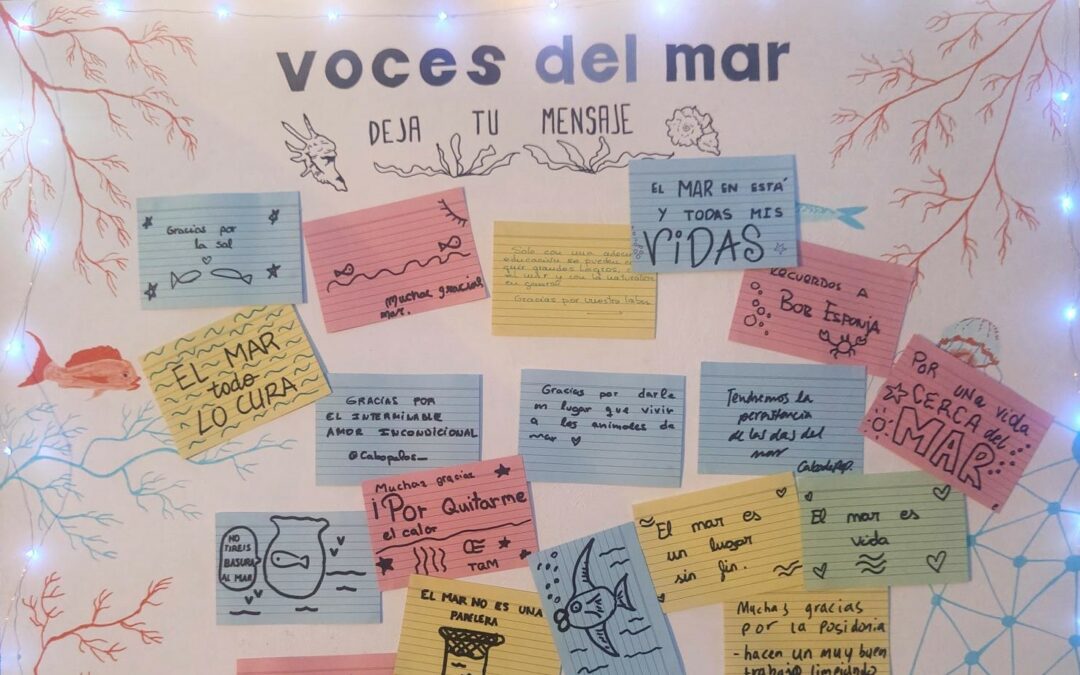 voces del mar
DEJA TU MENSAJE
Gracias por
la sal
Muchas gracias
mar.
Solo con una
educación se pueden
quir grandes logros,
el mar y con la naturaleza
en general
Gracias por vuestra labor
EL MAR EN ESTÁ
Y TODAS MIS
VIDAS
RECUERDOS A
BOB ESPONJA
EL MAR
todo
LO CURA
GRACIAS POR
EL INTERMINABLE
AMOR INCONDICIONAL
@Cabopalos_
Gracias por darle
un lugar que vivir
a los animales de
mar
Tendremos la
persistencia
de las olas del
mar
POR UNA vida
CERCA del
MAR
Muchas gracias
¡Por Quitarme
el calor
TQM
NO
TIREIS
BASURA
AL MAR
El mar es
un lugar
sin fin.
El mar es
vida
EL MAR NO ES UNA
PAPELERA
Muchas gracias
por la posidonia
- hacen un muy buen
trabajo limpiando